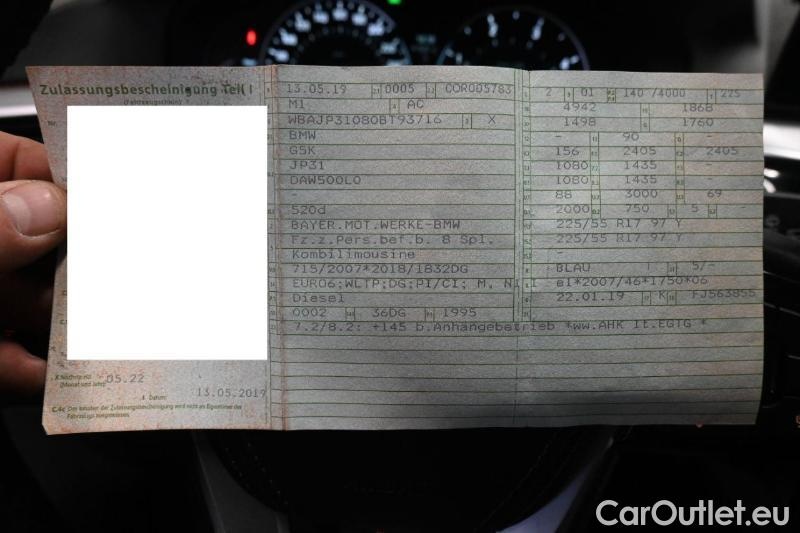 Zulassungsbescheinigung Teil I
(Fahrzeugschein)
Nächste HU
(Monat und Jahr)
05.22
Datum:
13.05.2019
C.4c Der Inhaber der Zulassungsbescheinigung wird nicht als Eigentümer des
Fahrzeugs ausgewiesen.
13.05.19 0005 COR005783
M1 AC
WBAJP31080BT93716 X
BMW
G5K
JP31
DAW500L0
-
520d
BAYER.MOT.WERKE-BMW
Fz.z.Pers.bef.b. 8 Spl.
Kombilimousine
715/2007*2018/1832DG
EURO6;WLTP;DG;PI/CI; M, N1 I
Diesel
0002 36DG 1995
7.2/8.2: +145 b.Anhängebetrieb *ww.AHK lt.EGTG *
2 01 140 /4000 225
4942 1868
1498 1760
- 90 -
156 2405 2405
1080 1435 -
1080 1435 -
88 3000 69
2000 750 5 -
225/55 R17 97 Y
225/55 R17 97 Y
-
BLAU 5/-
e1*2007/46*1750*06
22.01.19 K FJ563855
CarOutlet.eu